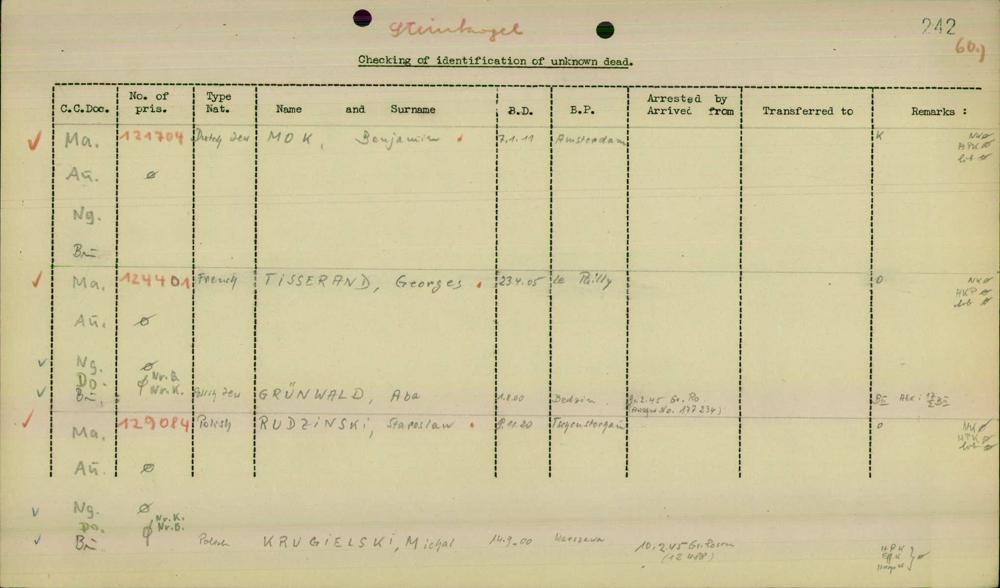 Steinkogel
242
60.)
Checking of identification of unknown dead.
C.C.Doc. No. of pris. Type Nat. Name and Surname B.D. B.P. Arrested by Arrived from Transferred to Remarks :
Ma. 121704 Dutch Jew MOK, Benjamin 7.1.11 Amsterdam K
Au. ø
Ng.
Bu
Ma. 124401 French TISSERAND, Georges 23.4.05 Le O
Au. ø
Ng. ø
Do. ø Nr.B. Nr.K.
Bu. Polish Jew GRÜNWALD, Aba 1.8.00 Bendzin 2.45 Gr. Ro.
(Ausch No. 177234)
Ma. 129084 Polish RUDZINSKI, 8.11.20 O
Au. ø
Ng. ø
Do. ø Nr.K. Nr.B.
Bu Polish KRUGIELSKI, Michal 14.9.00 Warszawa 10.2.45 Gr. Rosen